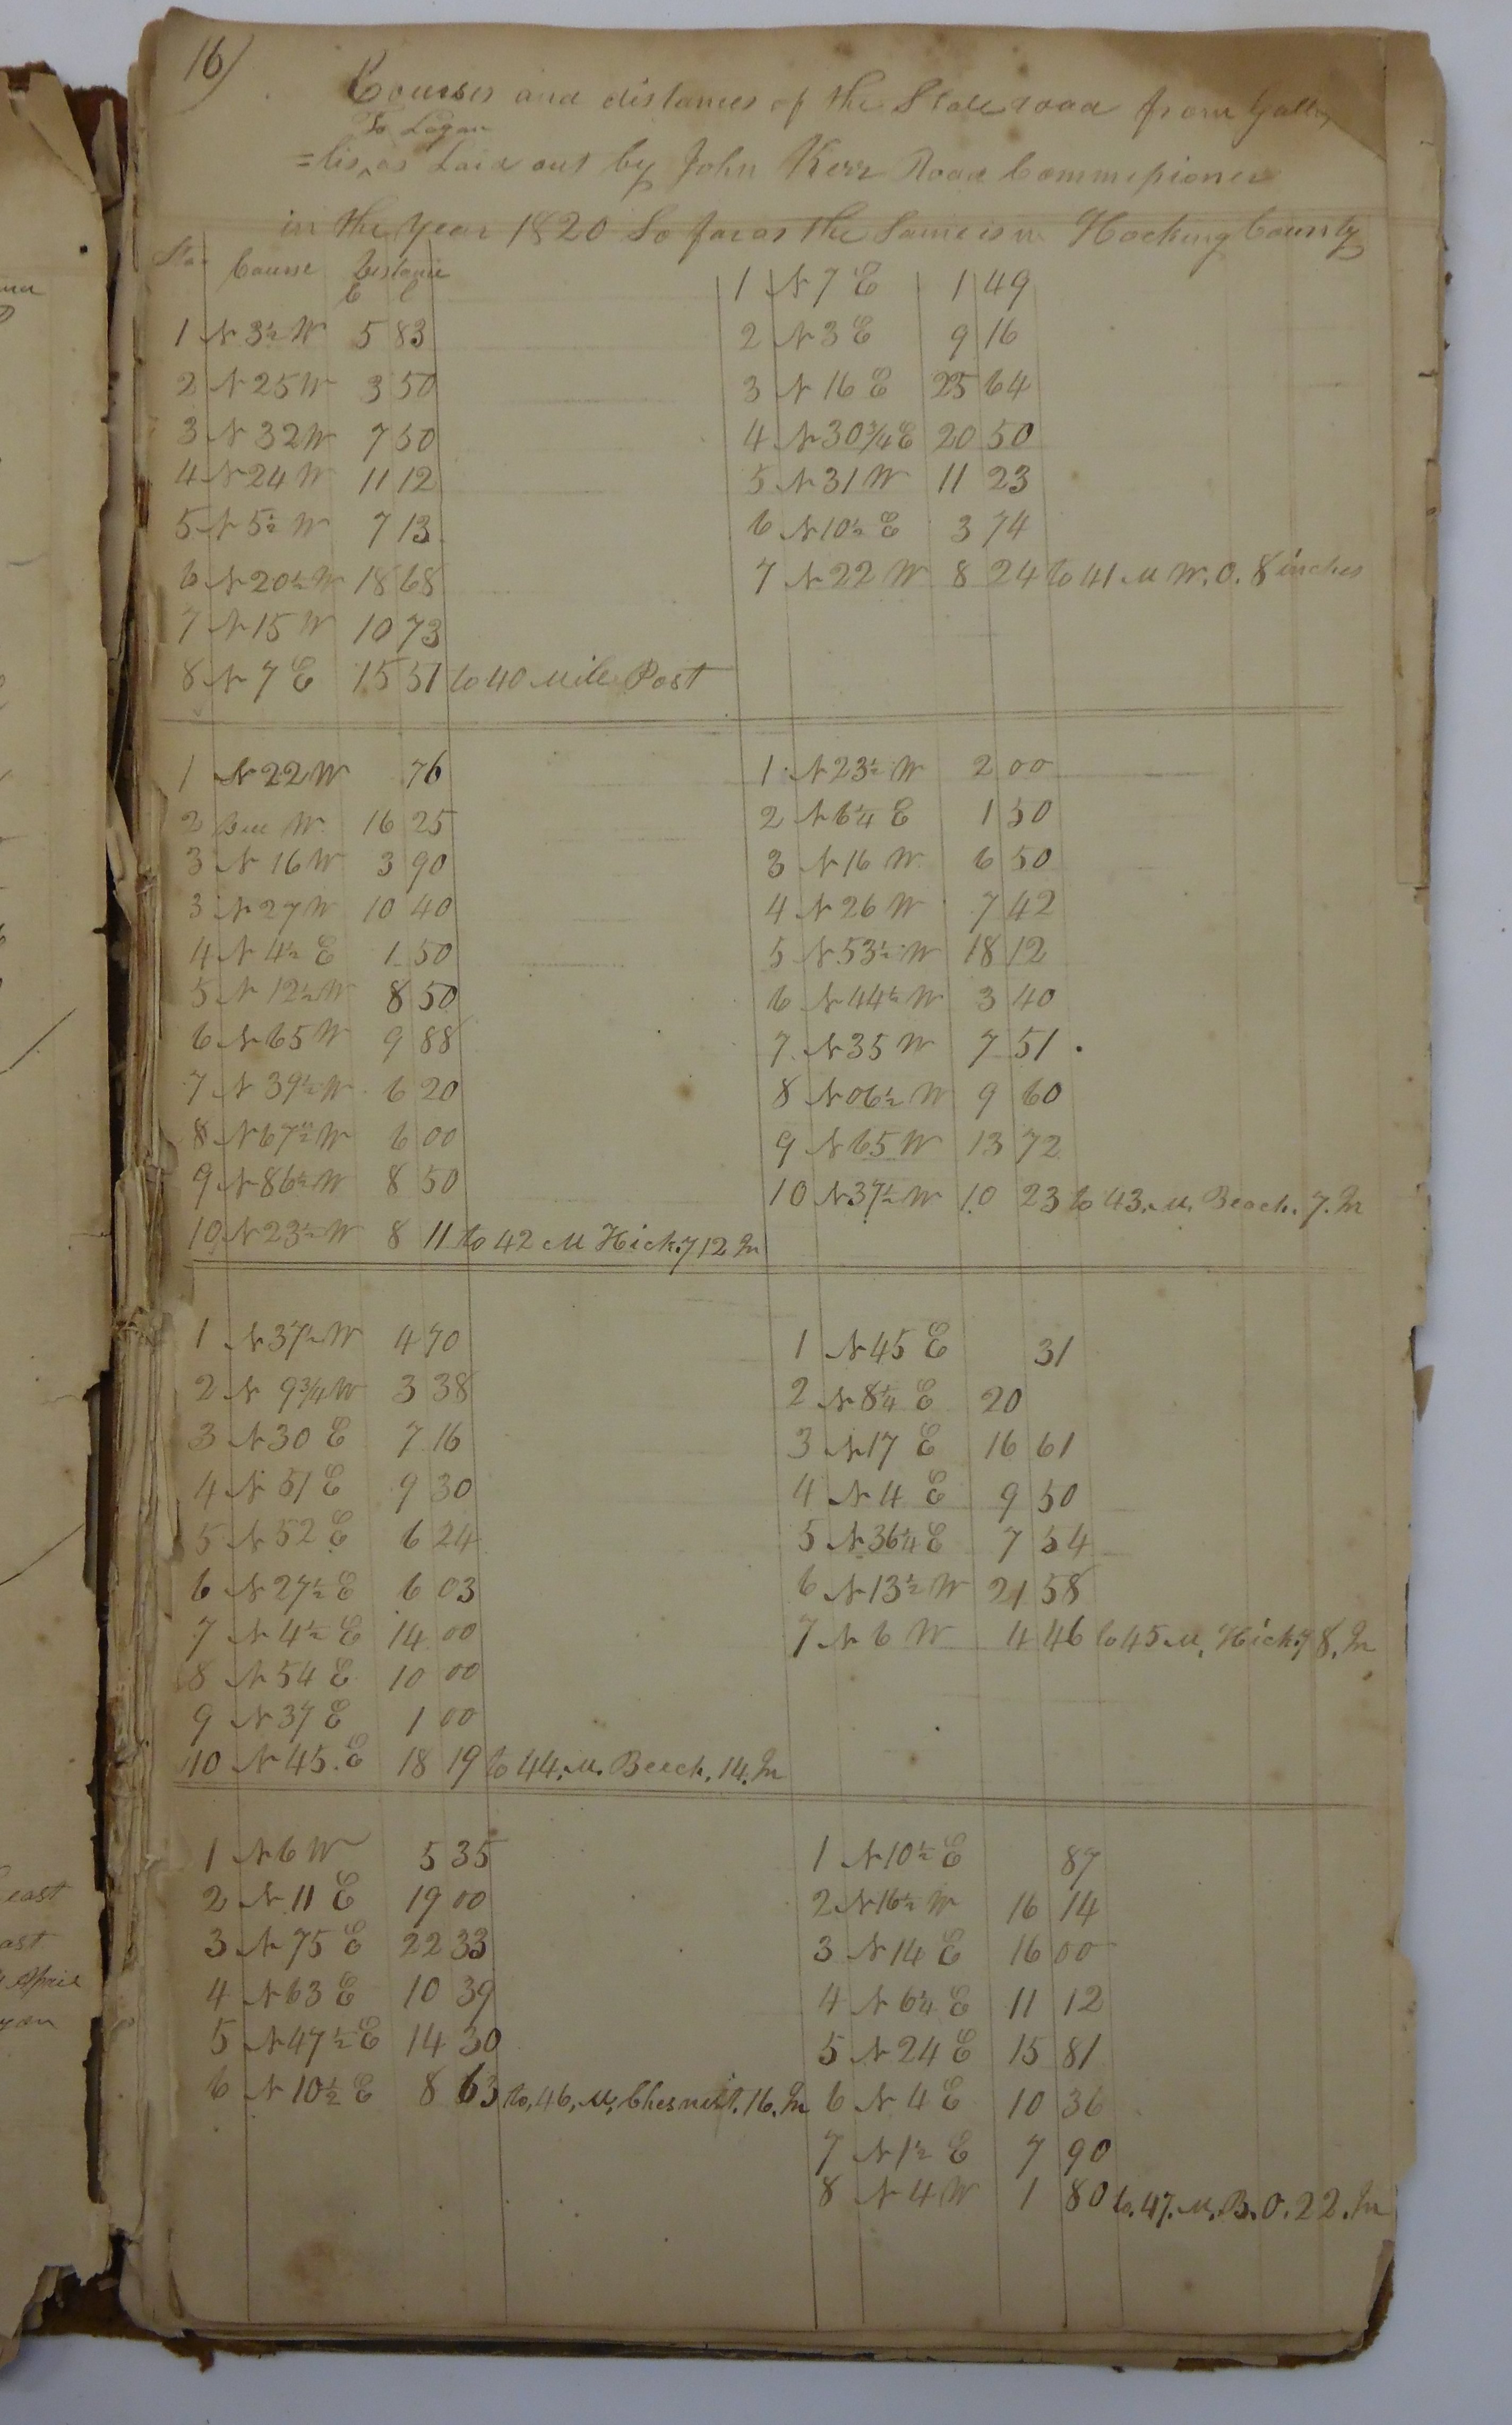 16)
Courses and distances of the State road from Gallip
To Logan
=lis, ^ as Laid out by John Kerr Road Commissioner
in the year 1820 So far as the Same is in Hocking County
Sta. Course Distance
C l
1 N 3½ W 5 83
2 N 25 W 3 50
3 N 32 W 7 50
4 N 24 W 11 12
5 N 5½ W 7 13
6 N 20½ W 18 68
7 N 15 W 10 73
8 N 7 E 15 51 to 40 Mile Post
1 N 7 E 1 49
2 N 3 E 9 16
3 N 16 E 25 64
4 N 30¾ E 20 50
5 N 31 W 11 23
6 N 10½ E 3 74
7 N 22 W 8 24 to 41 M W. O. 8 inches
1 N 22 W 76
2 Due W 16 25
3 N 16 W 3 90
3 N 27 W 10 40
4 N 4½ E 1 50
5 N 12½ W 8 50
6 N 65 W 9 88
7 N 39½ W 6 20
8 N 67½ W 6 00
9 N 86½ W 8 50
10 N 23½ W 8 11 to 42 M Hick.y 12 In
1 N 23½ W 2 00
2 N 6¼ E 1 50
3 N 16 W 6 50
4 N 26 W 7 42
5 N 53½ W 18 12
6 N 44½ W 3 40
7 N 35 W 7 51
8 N 06½ W 9 60
9 N 65 W 13 72
10 N 37½ W 10 23 to 43. M. Beech. 7. In
1 N 37½ W 4 70
2 N 9¾ W 3 38
3 N 30 E 7 16
4 N 51 E 9 30
5 N 52 E 6 24
6 N 27½ E 6 03
7 N 4½ E 14 00
8 N 54 E 10 00
9 N 37 E 1 00
10 N 45. E 18 19 to 44. M. Beech. 14. In
1 N 45 E 31
2 N 8¼ E 20
3 N 17 E 16 61
4 N 4 E 9 50
5 N 36¼ E 7 54
6 N 13½ W 21 58
7 N 6 W 4 46 to 45 M. Hick.y 8. In
1 N 6 W 5 35
2 N 11 E 19 00
3 N 75 E 22 33
4 N 63 E 10 39
5 N 47½ E 14 30
6 N 10½ E 8 63 to. 46. M. Chesnut. 16. In
1 N 10½ E 87
2 N 16½ W 16 14
3 N 14 E 16 00
4 N 6¼ E 11 12
5 N 24 E 15 81
6 N 4 E 10 36
7 N 1½ E 7 90
8 N 4 W 1 80 to. 47. M. B. O. 22. In
east
ast
April